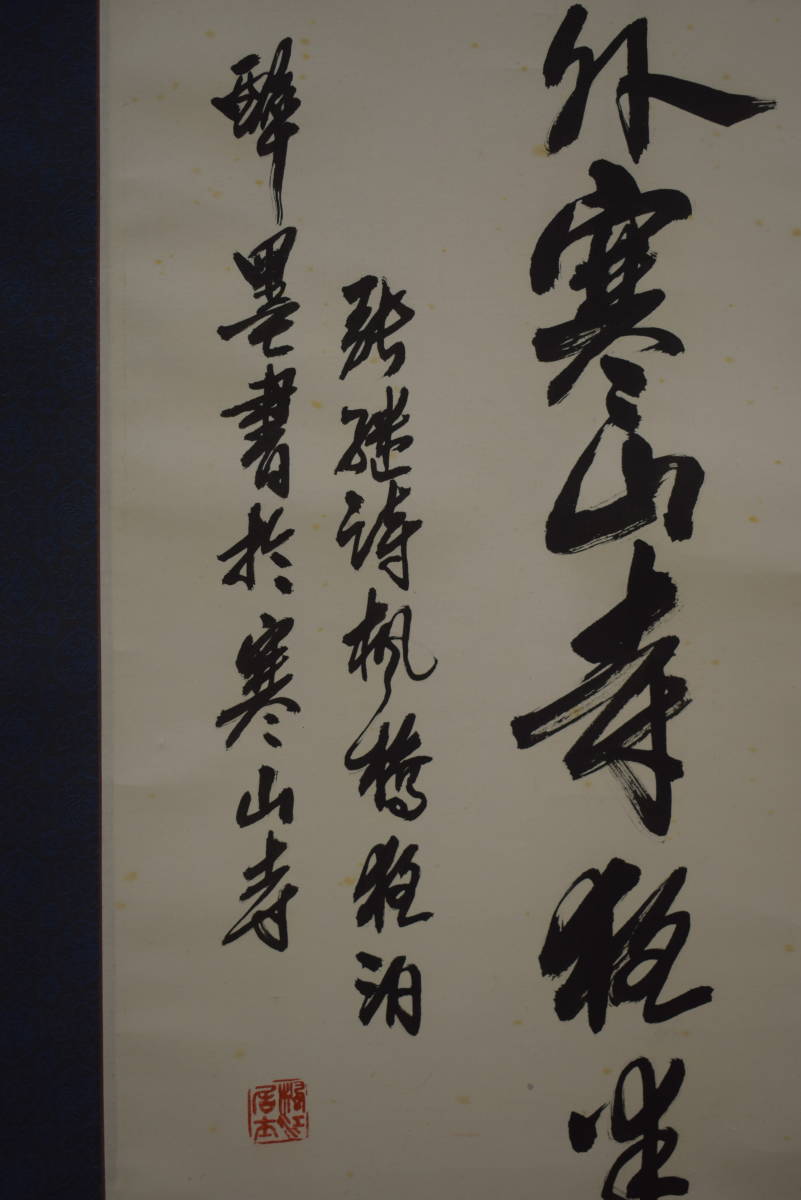 外寒山寺夜半
張継詩楓橋夜泊
醉墨書於寒山寺